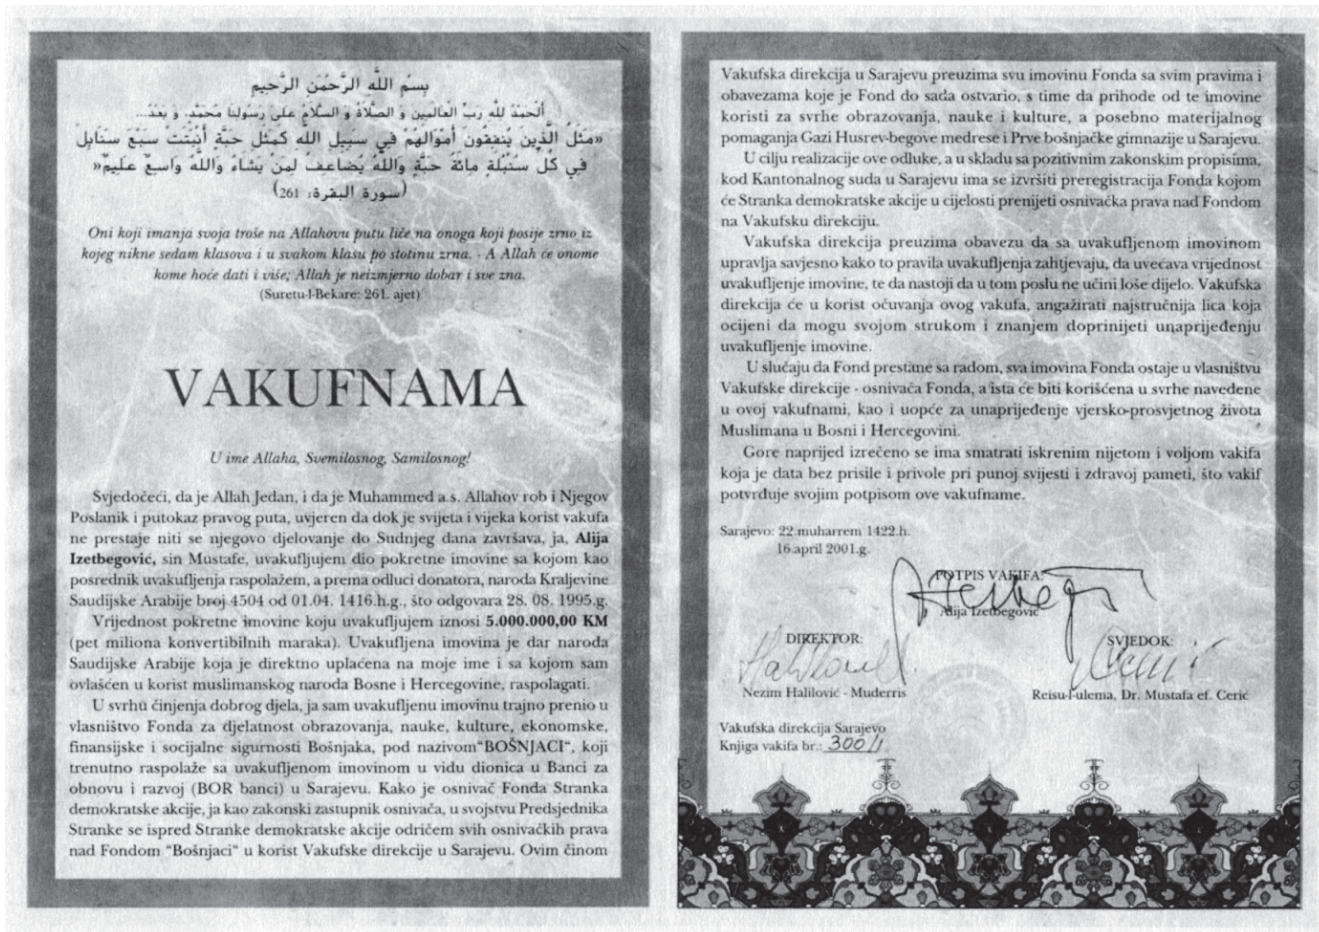 بِسْمِ اللَّهِ الرَّحْمَنِ الرَّحِيمِ
أَلْحَمْدُ لِلَّهِ رَبِّ الْعَالَمِينَ وَ الصَّلَاةُ وَ السَّلَامُ عَلَى رَسُولِنَا مُحَمَّدٍ، وَ بَعْدُ...
«مَثَلُ الَّذِينَ يُنْفِقُونَ أَمْوَالَهُمْ فِي سَبِيلِ اللَّهِ كَمَثَلِ حَبَّةٍ أَنْبَتَتْ سَبْعَ سَنَابِلَ
فِي كُلِّ سُنْبُلَةٍ مِائَةُ حَبَّةٍ وَاللَّهُ يُضَاعِفُ لِمَنْ يَشَاءُ وَاللَّهُ وَاسِعٌ عَلِيمٌ»
(سورة البقرة: 261)
Oni koji imanja svoja troše na Allahovu putu liče na onoga koji posije zrno iz
kojeg nikne sedam klasova i u svakom klasu po stotinu zrna. - A Allah će onome
kome hoće dati i više; Allah je neizmjerno dobar i sve zna.
(Suretu-l-Bekare: 261. ajet)
VAKUFNAMA
U ime Allaha, Svemilosnog, Samilosnog!
Svjedočeći, da je Allah Jedan, i da je Muhammed a.s. Allahov rob i Njegov
Poslanik i putokaz pravog puta, uvjeren da dok je svijeta i vijeka korist vakufa
ne prestaje niti se njegovo djelovanje do Sudnjeg dana završava, ja, Alija
Izetbegović, sin Mustafe, uvakufljujem dio pokretne imovine sa kojom kao
posrednik uvakufljenja raspolažem, a prema odluci donatora, naroda Kraljevine
Saudijske Arabije broj 4504 od 01.04. 1416.h.g., što odgovara 28. 08. 1995.g.
Vrijednost pokretne imovine koju uvakufljujem iznosi 5.000.000,00 KM
(pet miliona konvertibilnih maraka). Uvakufljena imovina je dar naroda
Saudijske Arabije koja je direktno uplaćena na moje ime i sa kojom sam
ovlašćen u korist muslimanskog naroda Bosne i Hercegovine, raspolagati.
U svrhu činjenja dobrog djela, ja sam uvakufljenu imovinu trajno prenio u
vlasništvo Fonda za djelatnost obrazovanja, nauke, kulture, ekonomske,
finansijske i socijalne sigurnosti Bošnjaka, pod nazivom"BOŠNJACI", koji
trenutno raspolaže sa uvakufljenom imovinom u vidu dionica u Banci za
obnovu i razvoj (BOR banci) u Sarajevu. Kako je osnivač Fonda Stranka
demokratske akcije, ja kao zakonski zastupnik osnivača, u svojstvu Predsjednika
Stranke se ispred Stranke demokratske akcije odričem svih osnivačkih prava
nad Fondom "Bošnjaci" u korist Vakufske direkcije u Sarajevu. Ovim činom
Vakufska direkcija u Sarajevu preuzima svu imovinu Fonda sa svim pravima i
obavezama koje je Fond do sada ostvario, s time da prihode od te imovine
koristi za svrhe obrazovanja, nauke i kulture, a posebno materijalnog
pomaganja Gazi Husrev-begove medrese i Prve bošnjačke gimnazije u Sarajevu.
U cilju realizacije ove odluke, a u skladu sa pozitivnim zakonskim propisima,
kod Kantonalnog suda u Sarajevu ima se izvršiti preregistracija Fonda kojom
će Stranka demokratske akcije u cijelosti prenijeti osnivačka prava nad Fondom
na Vakufsku direkciju.
Vakufska direkcija preuzima obavezu da sa uvakufljenom imovinom
upravlja savjesno kako to pravila uvakufljenja zahtjevaju, da uvećava vrijednost
uvakufljenje imovine, te da nastoji da u tom poslu ne učini loše dijelo. Vakufska
direkcija će u korist očuvanja ovog vakufa, angažirati najstručnija lica koja
ocijeni da mogu svojom strukom i znanjem doprinijeti unaprijeđenju
uvakufljenje imovine.
U slučaju da Fond prestane sa radom, sva imovina Fonda ostaje u vlasništvu
Vakufske direkcije - osnivača Fonda, a ista će biti korišćena u svrhe navedene
u ovoj vakufnami, kao i uopće za unaprijeđenje vjersko-prosvjetnog života
Muslimana u Bosni i Hercegovini.
Gore naprijed izrečeno se ima smatrati iskrenim nijetom i voljom vakifa
koja je data bez prisile i privole pri punoj svijesti i zdravoj pameti, što vakif
potvrđuje svojim potpisom ove vakufname.
Sarajevo: 22 muharrem 1422.h.
16 april 2001.g.
POTPIS VAKIFA:
Alija Izetbegović
DIREKTOR:
SVJEDOK:
Nezim Halilović - Muderris
Reisu-l-ulema, Dr. Mustafa ef. Cerić
Vakufska direkcija Sarajevo
Knjiga vakifa br.: 300/1